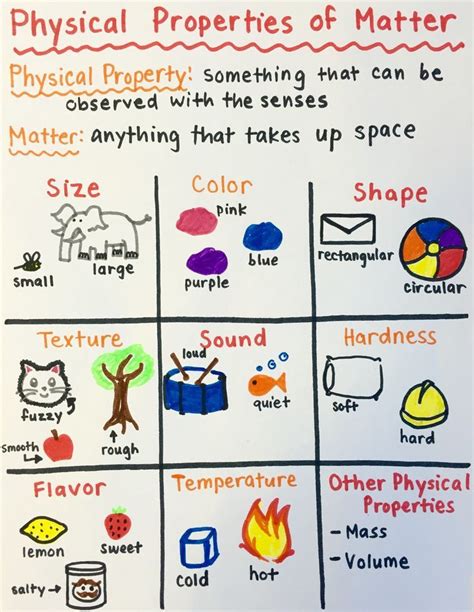 Physical Properties of Matter
Physical Property: something that can be
observed with the senses
Matter: anything that takes up space
Size
small
large
Color
pink
blue
purple
Shape
rectangular
circular
Texture
fuzzy
smooth
rough
Sound
loud
quiet
Hardness
soft
hard
Flavor
lemon
sweet
salty
Temperature
cold
hot
Other Physical
Properties
- Mass
- Volume